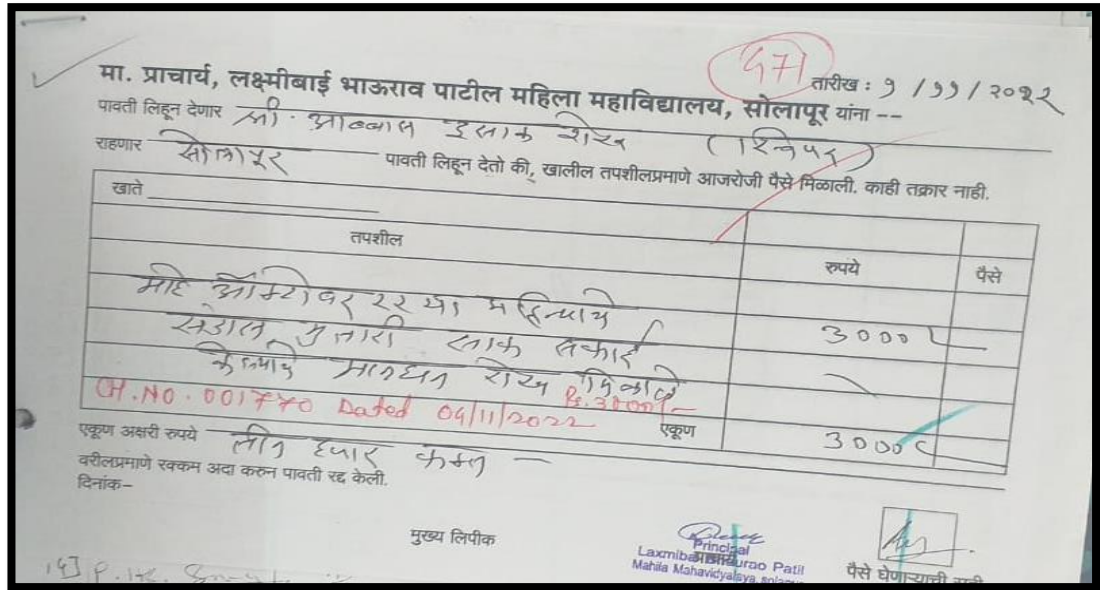 471
मा. प्राचार्य, लक्ष्मीबाई भाऊराव पाटील महिला महाविद्यालय, सोलापूर यांना -- तारीख : १ / ११ / २०२२
पावती लिहून देणार श्री. आब्बास इसाक शेख (स्विपर)
राहणार सोलापूर पावती लिहून देतो की, खालील तपशीलप्रमाणे आजरोजी पैसे मिळाली. काही तक्रार नाही.
खाते
तपशील रुपये पैसे
माहे ऑक्टोबर २२ या महिन्याचे
संडास मुतारी साफ सफाई 3000/-
केल्याचे मानधन रोख मिळाले
CH.NO. 001770 Dated 04/11/2022 Rs. 3000/-
एकूण 3000/-
एकूण अक्षरी रुपये तीन हजार फक्त -
वरीलप्रमाणे रक्कम अदा करुन पावती रद्द केली.
दिनांक–
मुख्य लिपीक
Principal
Mahila Mahavidyalaya
पैसे घेणाऱ्याची सही